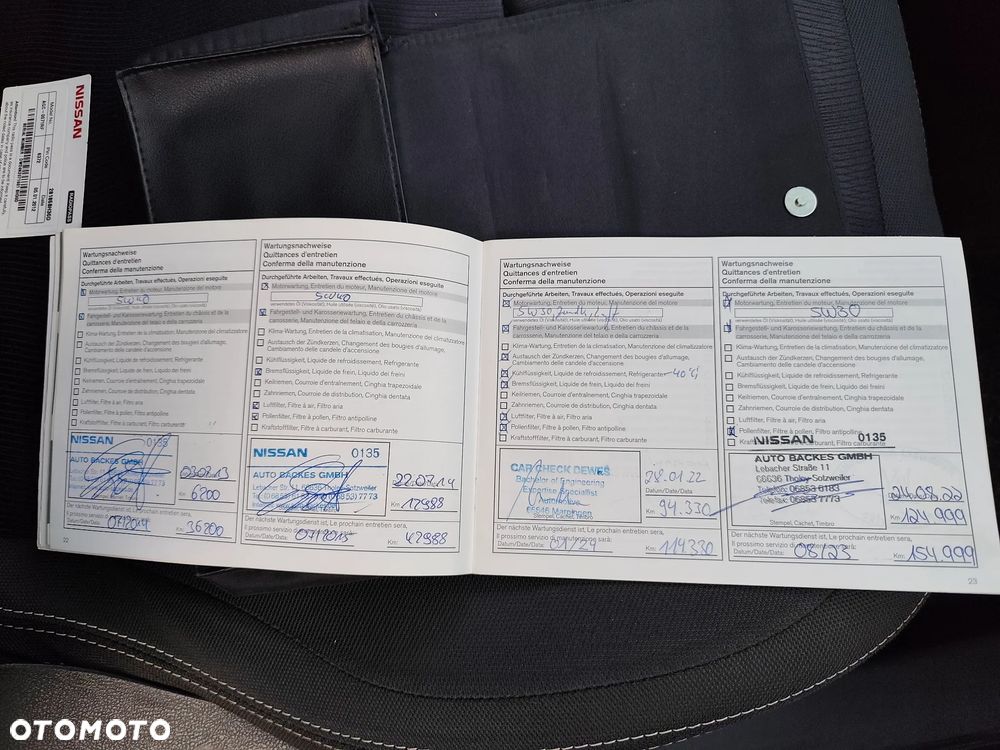 NISSAN
Model No.
Inv. Code
Code
6272
05.01.2012
Wartungsnachweise
Quittances d'entretien
Conferma della manutenzione
Durchgeführte Arbeiten, Travaux effectués, Operazioni eseguite
Motorwartung, Entretien du moteur, Manutenzione del motore
5W40
Fahrgestell- und Karosseriewartung, Entretien du châssis et de la
carrosserie, Manutenzione del telaio e della carrozzeria
Klima-Wartung, Entretien de la climatisation, Manutenzione del climatizzatore
Austausch der Zündkerzen, Changement des bougies d'allumage,
Cambiamento delle candele d'accensione
Kühlflüssigkeit, Liquide de refroidissement, Refrigerante
Bremsflüssigkeit, Liquide de frein, Liquido dei freni
Keilriemen, Courroie d'entraînement, Cinghia trapezoidale
Zahnriemen, Courroie de distribution, Cinghia dentata
Luftfilter, Filtre à air, Filtro aria
Pollenfilter, Filtre à pollen, Filtro antipolline
Kraftstofffilter, Filtre à carburant, Filtro carburante
NISSAN 0135
AUTO BACKES GMBH
Km: 6200
Der nächste Wartungsdienst ist, Le prochain entretien sera,
Il prossimo servizio di manutenzione sarà:
Datum/Date/Data: 07/2014 Km: 36200
22
Wartungsnachweise
Quittances d'entretien
Conferma della manutenzione
Durchgeführte Arbeiten, Travaux effectués, Operazioni eseguite
Motorwartung, Entretien du moteur, Manutenzione del motore
5W40
verwendetes Öl (Viskosität), Huile utilisée (viscosité), Olio usato (viscosità)
Fahrgestell- und Karosseriewartung, Entretien du châssis et de la
carrosserie, Manutenzione del telaio e della carrozzeria
Klima-Wartung, Entretien de la climatisation, Manutenzione del climatizzatore
Austausch der Zündkerzen, Changement des bougies d'allumage,
Cambiamento delle candele d'accensione
Kühlflüssigkeit, Liquide de refroidissement, Refrigerante
Bremsflüssigkeit, Liquide de frein, Liquido dei freni
Keilriemen, Courroie d'entraînement, Cinghia trapezoidale
Zahnriemen, Courroie de distribution, Cinghia dentata
Luftfilter, Filtre à air, Filtro aria
Pollenfilter, Filtre à pollen, Filtro antipolline
Kraftstofffilter, Filtre à carburant, Filtro carburante
NISSAN 0135
AUTO BACKES GMBH
Lebacher Str. 11, 66636 Tholey-Sotzweiler
22.07.14
Km: 17988
Der nächste Wartungsdienst ist, Le prochain entretien sera,
Il prossimo servizio di manutenzione sarà:
Datum/Date/Data: 07/2015 Km: 47988
Wartungsnachweise
Quittances d'entretien
Conferma della manutenzione
Durchgeführte Arbeiten, Travaux effectués, Operazioni eseguite
Motorwartung, Entretien du moteur, Manutenzione del motore
5W30
Fahrgestell- und Karosseriewartung, Entretien du châssis et de la
carrosserie, Manutenzione del telaio e della carrozzeria
Klima-Wartung, Entretien de la climatisation, Manutenzione del climatizzatore
Austausch der Zündkerzen, Changement des bougies d'allumage,
Cambiamento delle candele d'accensione
Kühlflüssigkeit, Liquide de refroidissement, Refrigerante
Bremsflüssigkeit, Liquide de frein, Liquido dei freni
Keilriemen, Courroie d'entraînement, Cinghia trapezoidale
Zahnriemen, Courroie de distribution, Cinghia dentata
Luftfilter, Filtre à air, Filtro aria
Pollenfilter, Filtre à pollen, Filtro antipolline
Kraftstofffilter, Filtre à carburant, Filtro carburante
CAR CHECK DEWES
Bachelor of Engineering
Expertise Specialist
Automotive
66646 Marpingen
28.01.22
Datum/Date/Data
Km: 94.330
Stempel, Cachet, Timbro
Der nächste Wartungsdienst ist, Le prochain entretien sera,
Il prossimo servizio di manutenzione sarà:
Datum/Date/Data: 01/24 Km: 114330
Wartungsnachweise
Quittances d'entretien
Conferma della manutenzione
Durchgeführte Arbeiten, Travaux effectués, Operazioni eseguite
Motorwartung, Entretien du moteur, Manutenzione del motore
5W30
verwendetes Öl (Viskosität), Huile utilisée (viscosité), Olio usato (viscosità)
Fahrgestell- und Karosseriewartung, Entretien du châssis et de la
carrosserie, Manutenzione del telaio e della carrozzeria
Klima-Wartung, Entretien de la climatisation, Manutenzione del climatizzatore
Austausch der Zündkerzen, Changement des bougies d'allumage,
Cambiamento delle candele d'accensione
Kühlflüssigkeit, Liquide de refroidissement, Refrigerante
Bremsflüssigkeit, Liquide de frein, Liquido dei freni
Keilriemen, Courroie d'entraînement, Cinghia trapezoidale
Zahnriemen, Courroie de distribution, Cinghia dentata
Luftfilter, Filtre à air, Filtro aria
Pollenfilter, Filtre à pollen, Filtro antipolline
NISSAN 0135
AUTO BACKES GMBH
Lebacher Straße 11
66636 Tholey-Sotzweiler
Telefon: 06853 6183
Telefax: 06853 7773
24.08.22
Datum/Date/Data
Km: 124.999
Stempel, Cachet, Timbro
Der nächste Wartungsdienst ist, Le prochain entretien sera,
Il prossimo servizio di manutenzione sarà:
Datum/Date/Data: 08/23 Km: 154.999
23
OTOMOTO